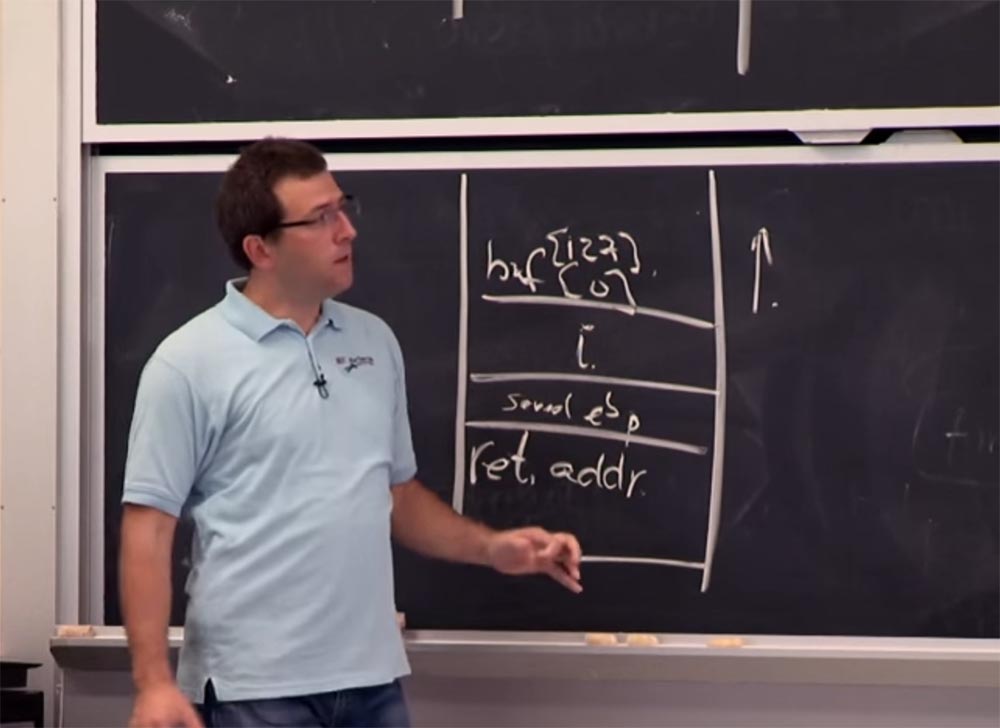 buf [127]
[0]
i
saved ebp
ret. addr.